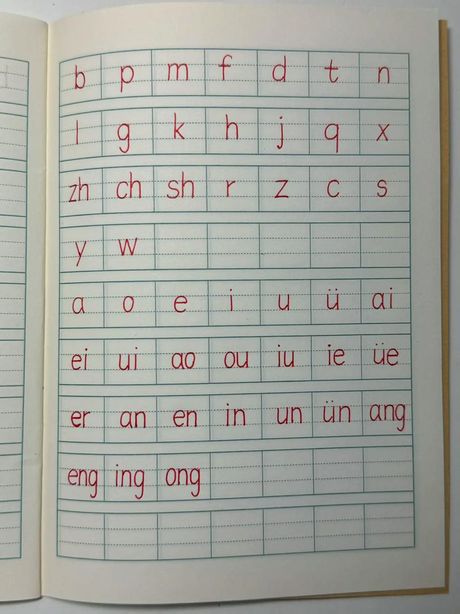 b p m f d t n
l g k h j q x
zh ch sh r z c s
y w
a o e i u ü ai
ei ui ao ou iu ie üe
er an en in un ün ang
eng ing ong